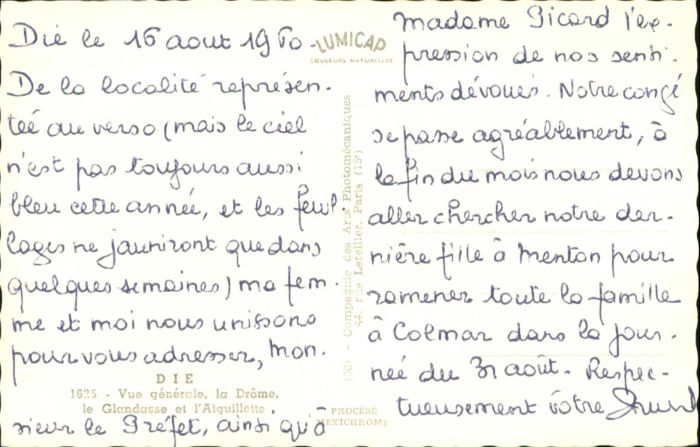 Dié le 16 aout 1960
De la localité représen-
tée au verso (mais le ciel
n'est pas toujours aussi
bleu cette année, et les feuil-
lages ne jauniront que dans
quelques semaines) ma fem-
me et moi nous unissons
pour vous adresser, Mon-
sieur le Préfet, ainsi qu'à
DIE
1625 - Vue générale, la Drôme,
le Glandasse et l'Aiguillette
LUMICAP
COULEURS NATURELLES
- Compagnie des Arts Photomécaniques
44, rue Letellier, Paris (15e)
PROCÉDÉ
TEXICHROME
madame Picard l'ex-
pression de nos senti-
ments dévoués. Notre congé
se passe agréablement, à
la fin du mois nous devons
aller chercher notre der-
nière fille à Menton pour
ramener toute la famille
à Colmar dans la jour-
née du 31 août. Respec-
tueusement vôtre